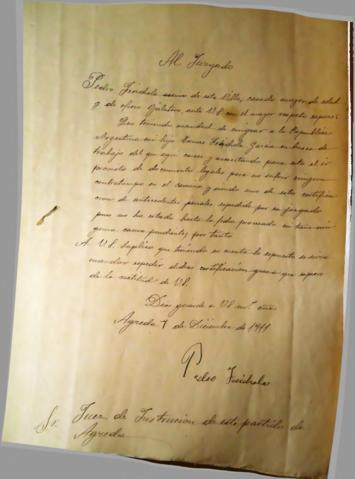 Al Juzgado
Pedro vecino de esta Villa, casado mayor de edad
y de oficio ante V.S. con el mayor respeto expone:
Que teniendo necesidad de emigrar a la República
Argentina mi hijo Tomas García en busca de
trabajo del que aquí carece y necesitando para ello el ir
provisto de documentos legales para no sufrir ningun
contratiempo en el camino y siendo uno de estos certifica
cion de antecedentes penales expedida por su juzgado
pues no ha estado hasta la fecha procesado ni tiene nin
guna causa pendiente, por tanto
A V.S. suplica que teniendo en cuenta lo expuesto se sirva
mandar expedir dicha certificacion gracia que espera
de la rectitud de V.S.
Dios guarde a V.S. ms. años
Agreda 7 de Diciembre de 1911
Pedro
Sr. Juez de Instruccion de este partido de
Agreda